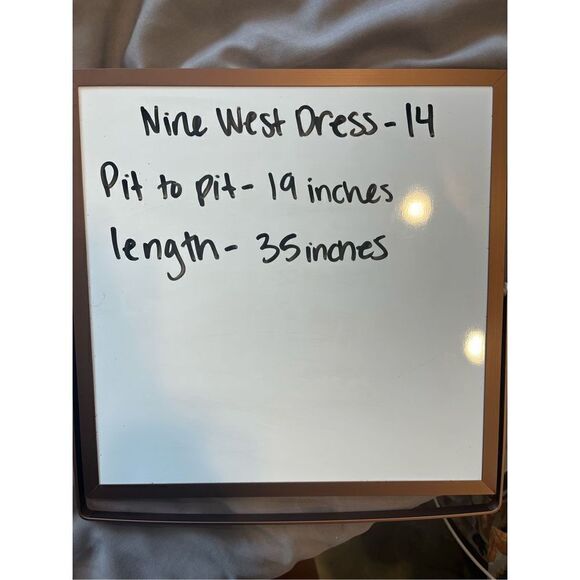 Nine West Dress - 14
Pit to pit - 19 inches
length - 35 inches